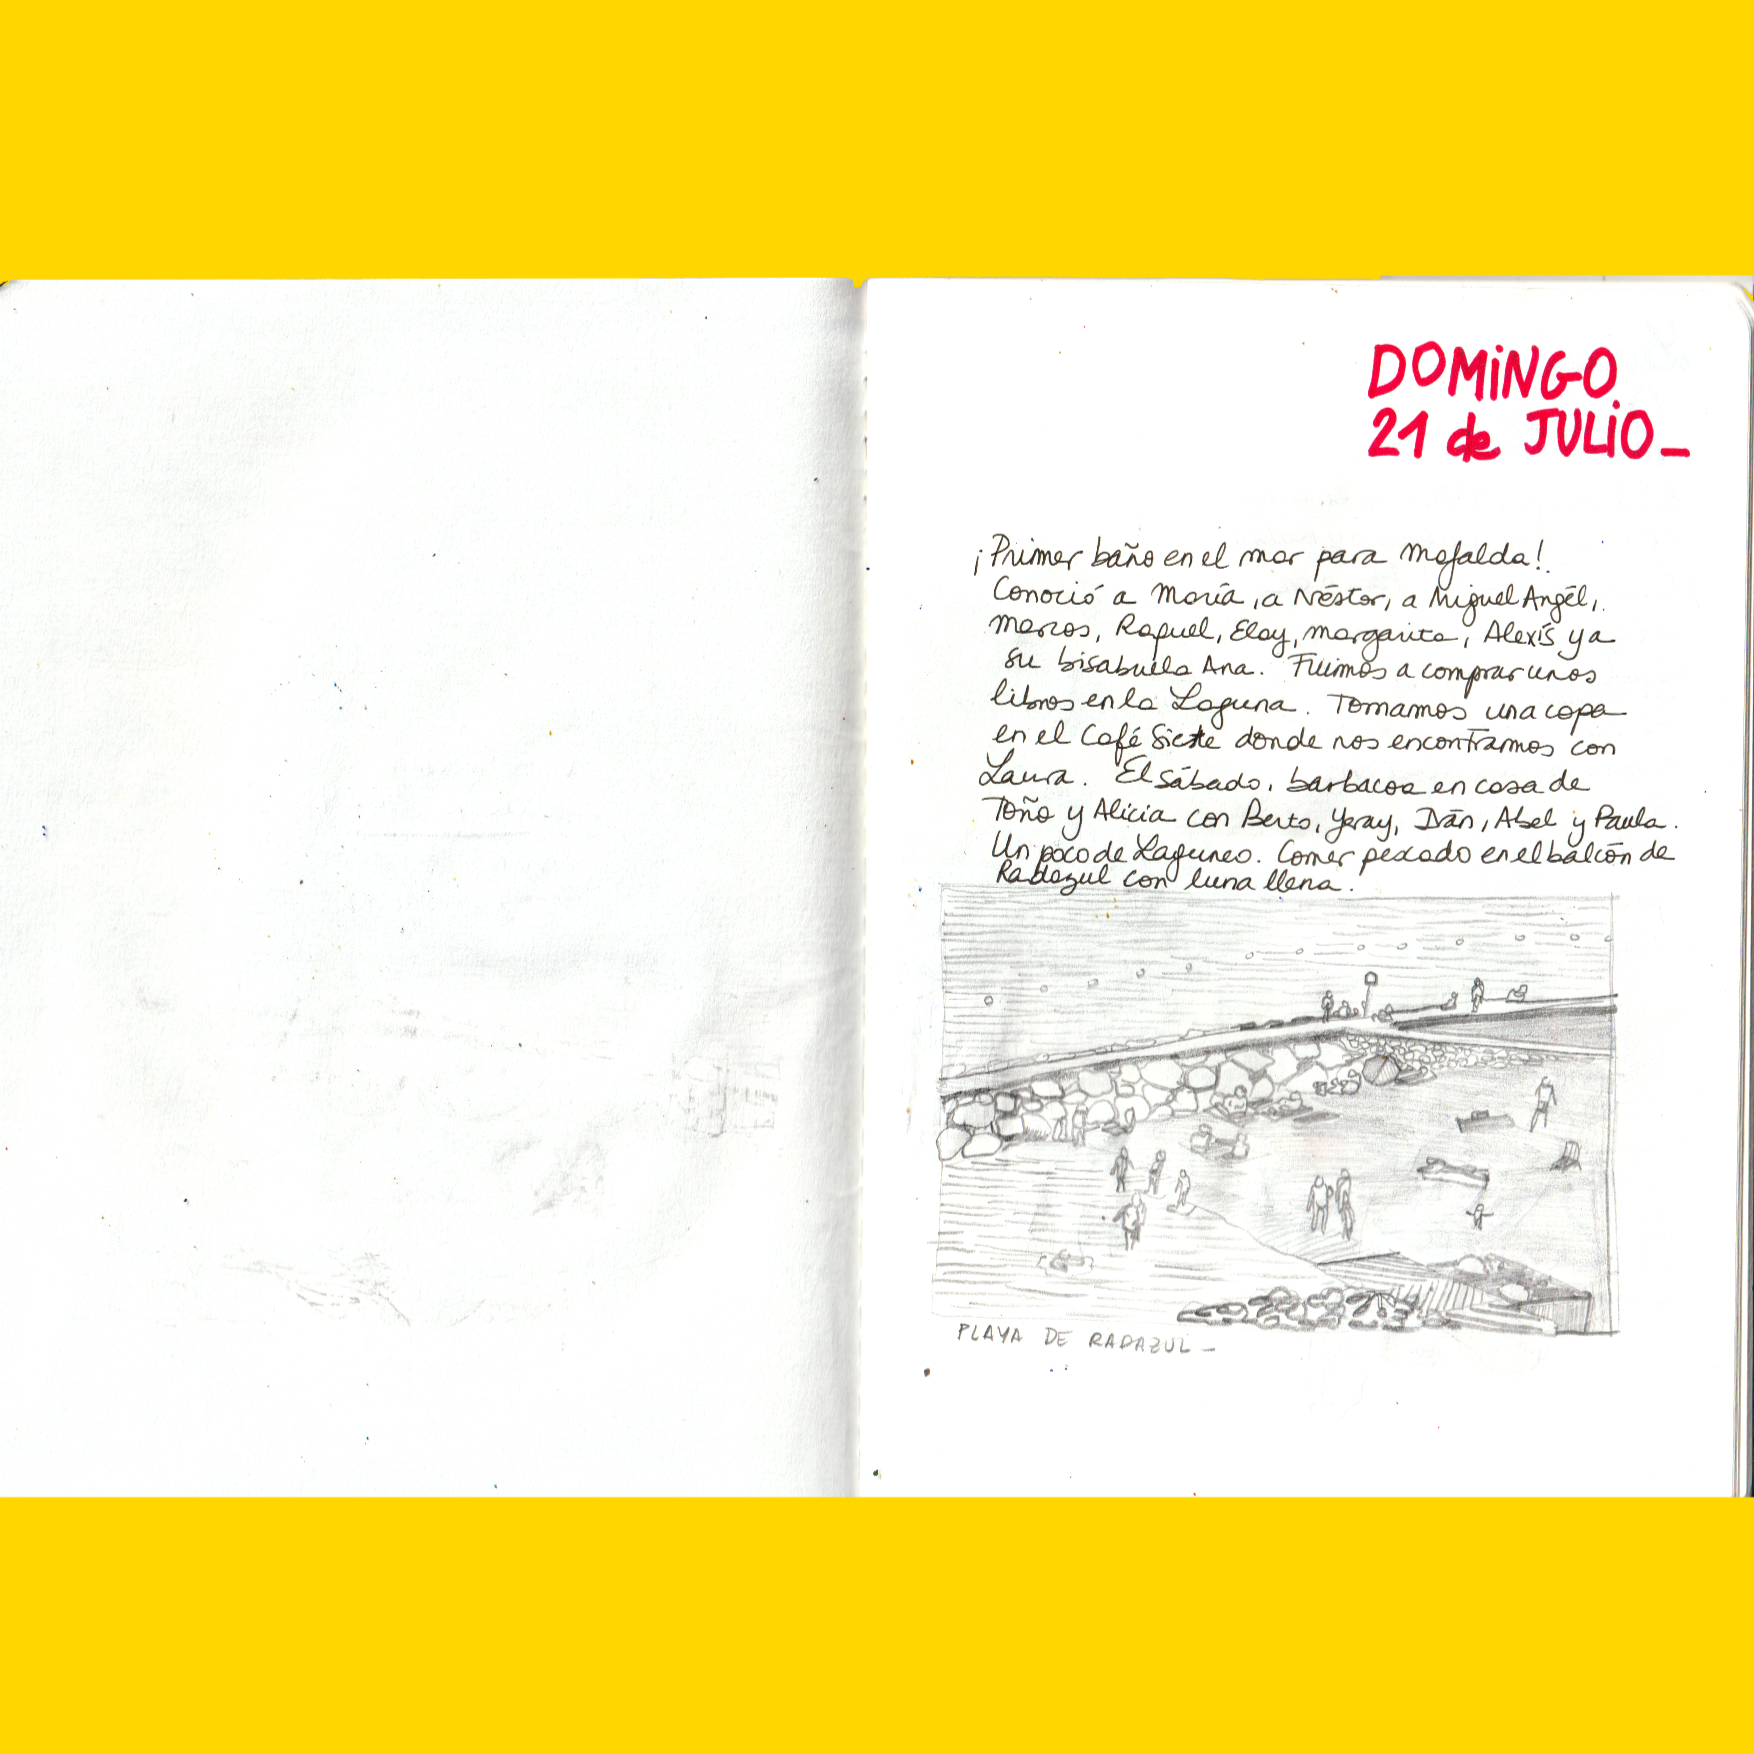 DOMiNGO
21 de JULIO_
¡Primer baño en el mar para Mafalda!.
Conoció a María, a Néstor, a Miguel Angél,
Marcos, Raquel, Eloy, Margarita, Alexís y a
su bisabuela Ana. Fuimos a comprar unos
libros en la Laguna. Tomamos una copa
en el Café Siete donde nos encontramos con
Laura. El Sábado, barbacoa en casa de
Toño y Alicia con Berto, Yeray, Iván, Abel y Paula.
Un poco de Laguneo. Comer pescado en el balcón de
Radazul con luna llena.
PLAYA DE RADAZUL_